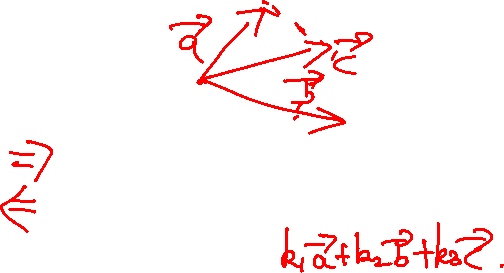 a⃗
c⃗
b⃗
⇒
⇐
k₁a⃗+k₂b⃗+k₃c⃗.